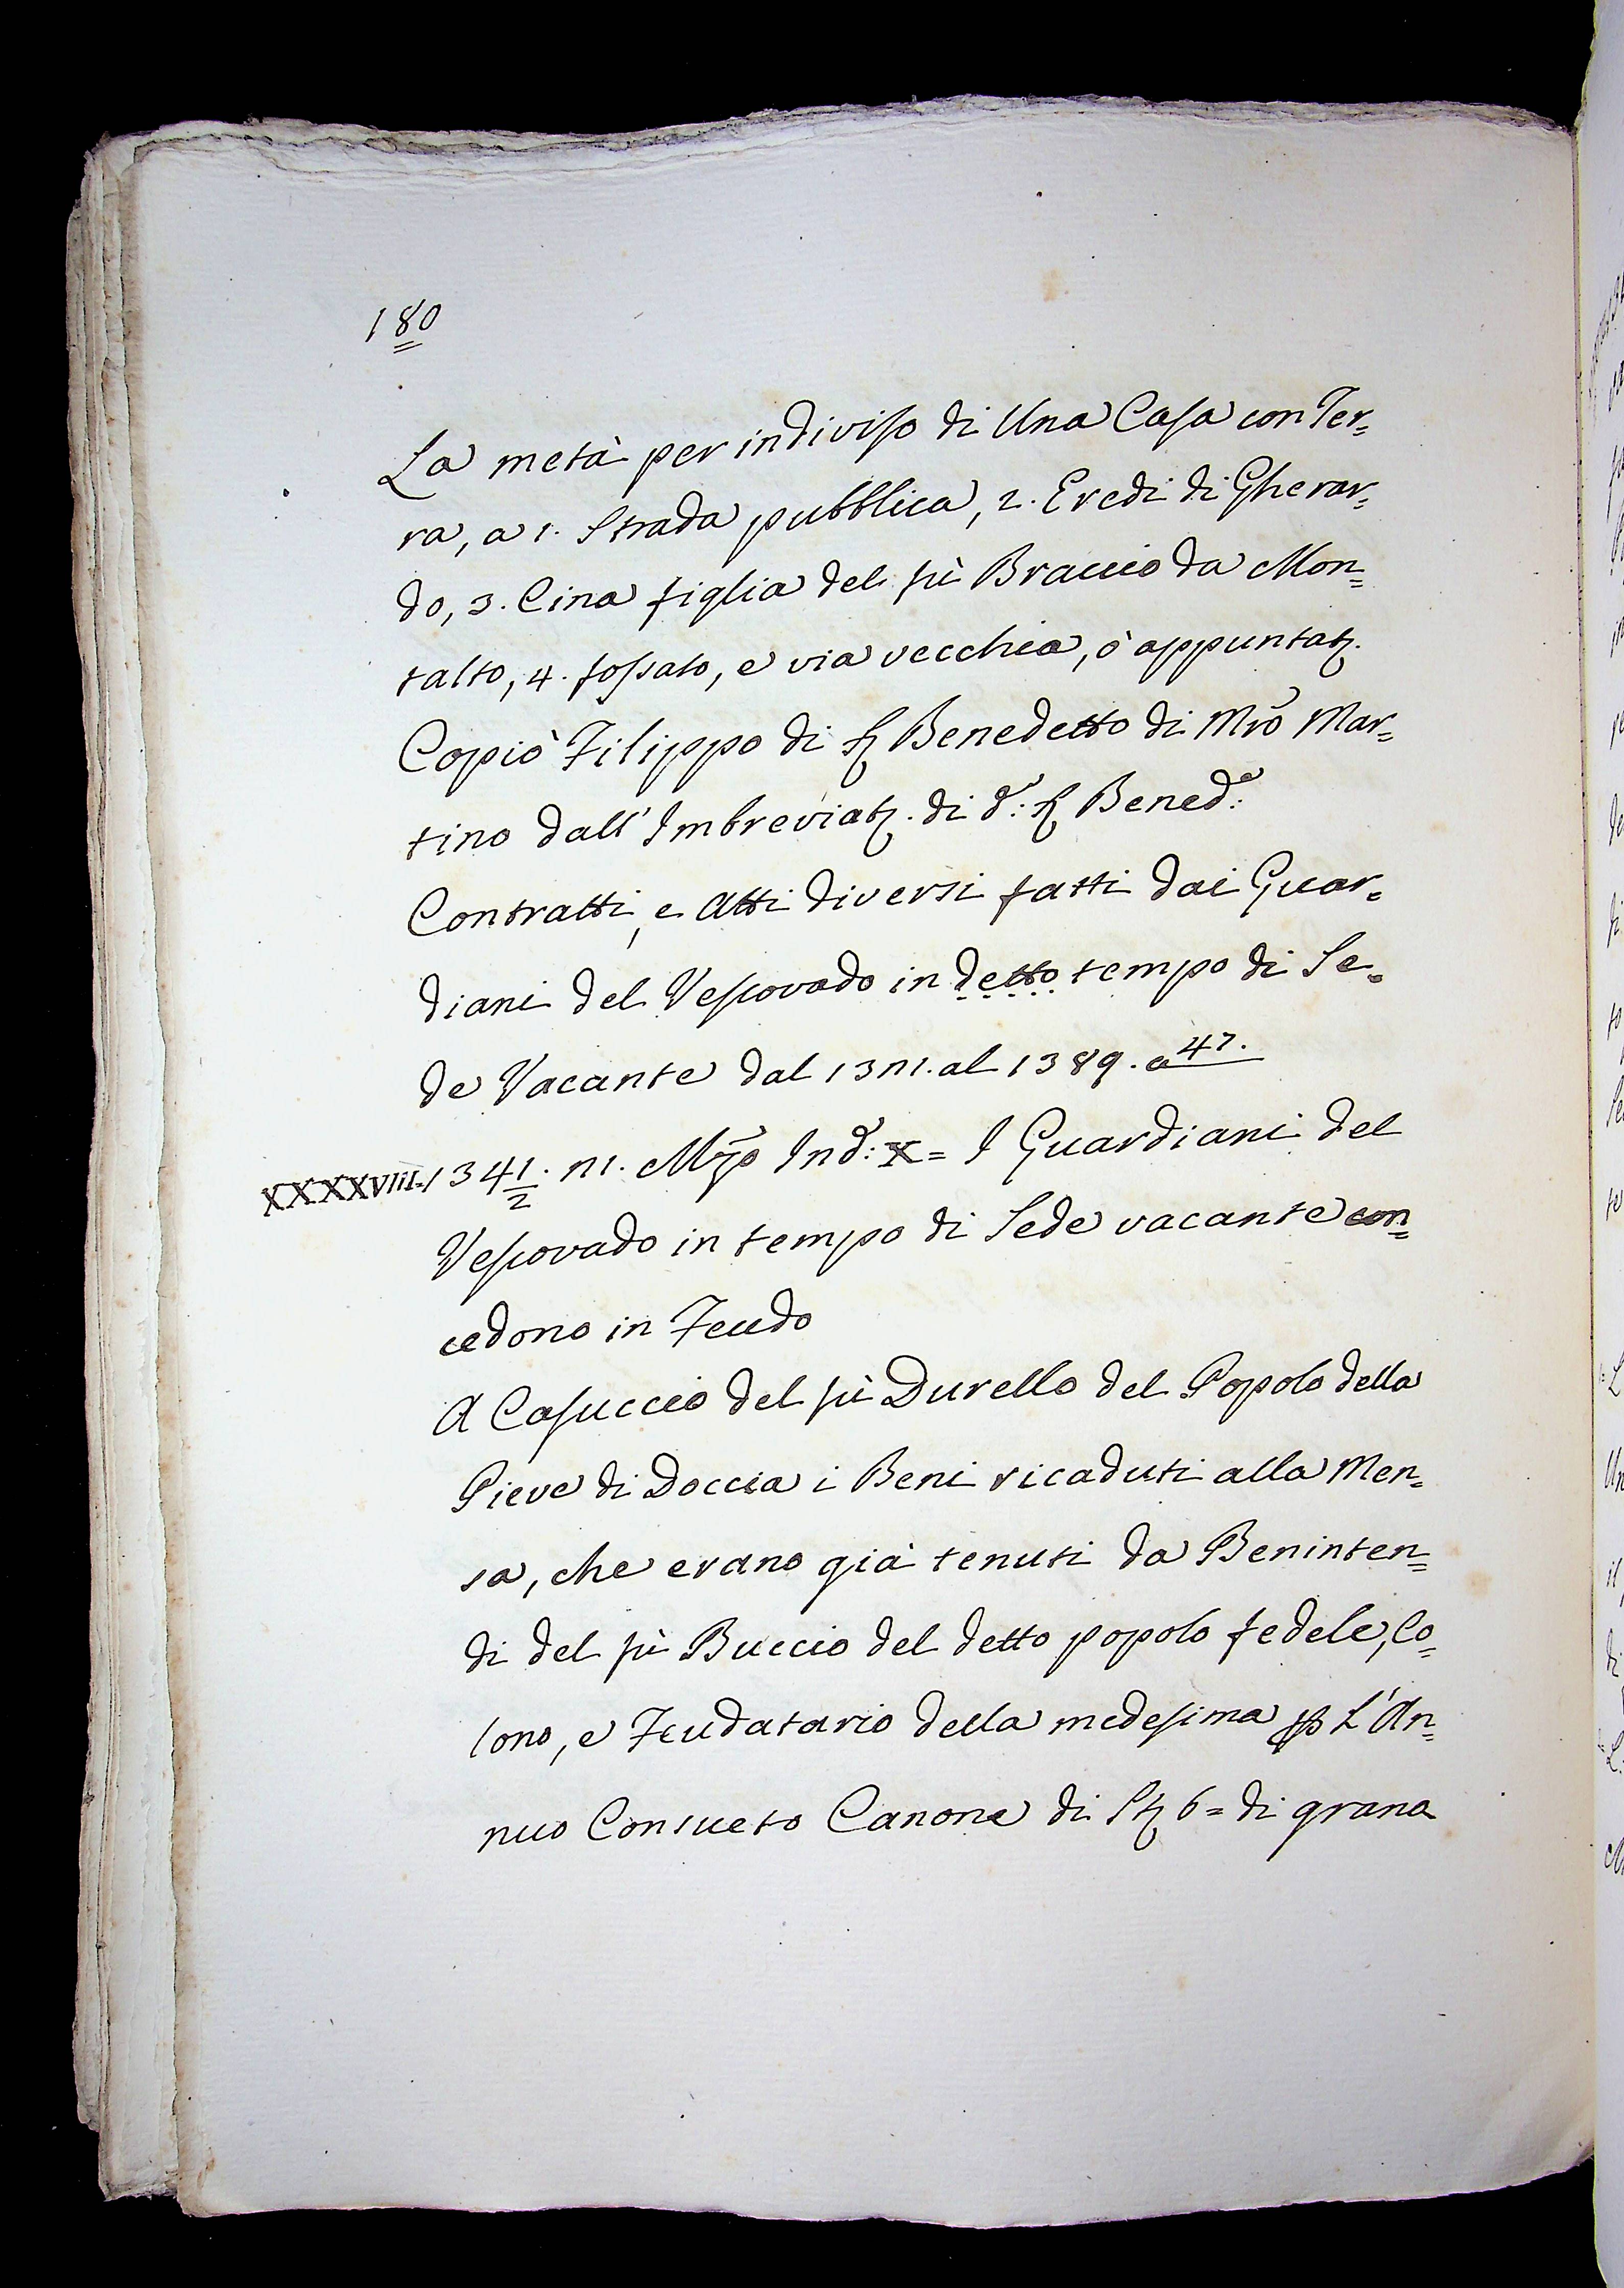 180
La metà per indiviso di Una Casa con Ter=
ra, a 1. Strada pubblica, 2. Eredi di Gherar=
do, 3. Cina figlia del fù Braccio da Mon=
talto, 4. fossato, e via vecchia, ò appuntatz.
Copiò Filippo di Sz Benedetto di Mrõ Mar=
tino dall' Imbreviatz. di d.º: Sz Bened.º:
Contratti, e Atti diversi fatti dai Guar=
diani del Vescovado in detto tempo di Se=
de Vacante dal 1311. al 1389. a 47.
XXXXVIII. 1341/2. 11. Mzo Ind: X = I Guardiani del
Vescovado in tempo di Sede vacante con=
cedono in Feudo
A Casuccio del fù Durello del Popolo della
Pieve di Doccia i Beni ricaduti alla Men=
sa, che erano già tenuti da Beninten=
di del fù Buccio del detto popolo fedele, Co=
lono, e Feudatario della medesima p L'An=
nuo Consueto Canone di Stz 6 = di grano